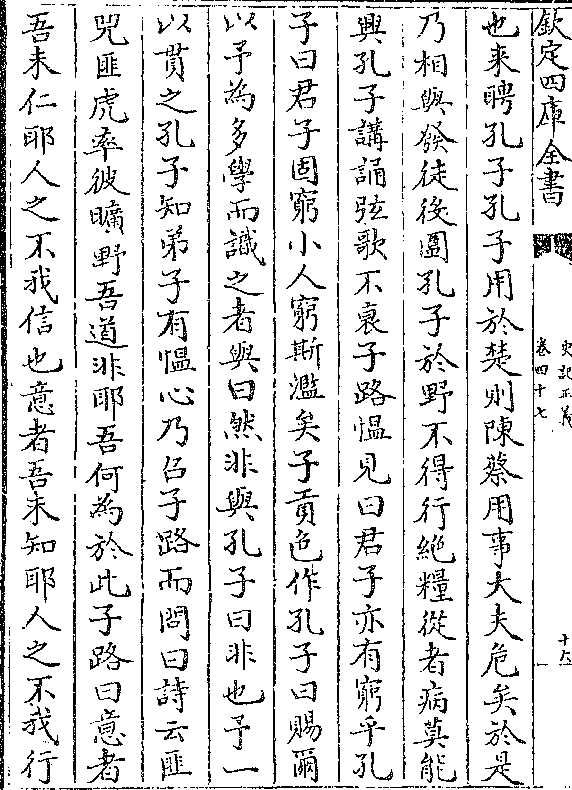 欽定四庫全書
史記正義
卷四十七
十六
也来聘孔子孔子用於楚則陳蔡用事大夫危矣於是
乃相與發徒役圍孔子於野不得行絶糧從者病莫能
興孔子講誦弦歌不衰子路愠見曰君子亦有窮乎孔
子曰君子固窮小人窮斯濫矣子貢色作孔子曰賜爾
以予為多學而識之者與曰然非與孔子曰非也予一
以貫之孔子知弟子有愠心乃召子路而問曰詩云匪
兕匪虎率彼曠野吾道非耶吾何為於此子路曰意者
吾未仁耶人之不我信也意者吾未知耶人之不我行